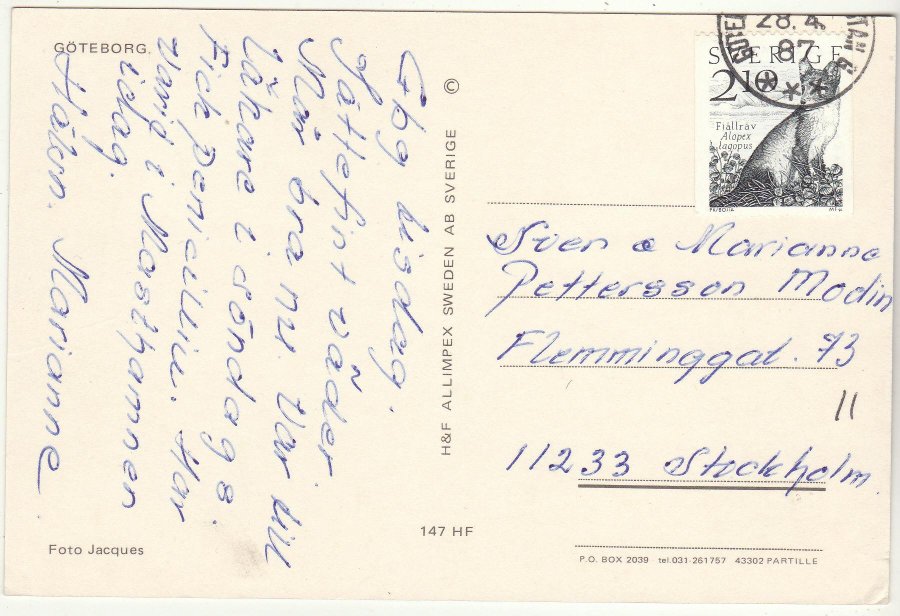 GÖTEBORG.
Gbg tisdag.
Jättefint väder.
Mår bra nu. Var till
läkare i söndags.
Fick penicillin. Har
varit i Masthamnen
idag.
Hälsn. Marianne
Foto Jacques
H&F ALLIMPEX SWEDEN AB SVERIGE ©
147 HF
28.4.
87
SVERIGE
210
Fjällräv
Alopex
lagopus
Sven o Marianne
Pettersson Modin
Flemminggat. 73
11
11233 Stockholm.
P.O. BOX 2039 tel.031-261757 43302 PARTILLE